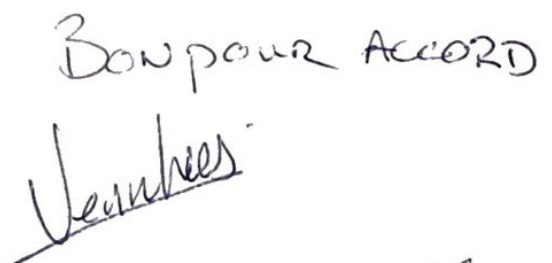 BON POUR ACCORD